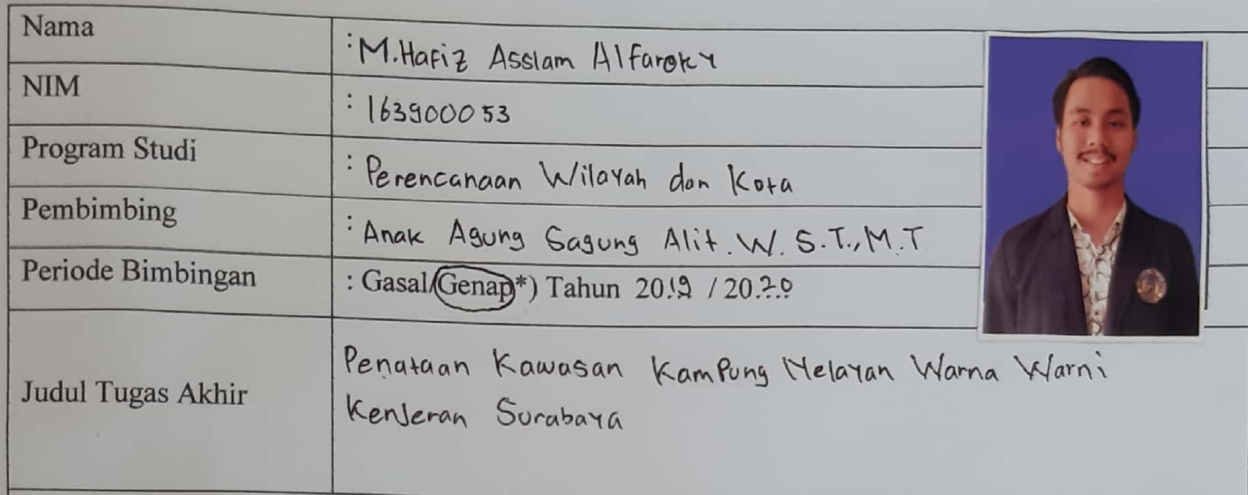 Nama : M.Hafiz Asslam Alfaroky
NIM : 163900053
Program Studi : Perencanaan Wilayah dan Kota
Pembimbing : Anak Agung Sagung Alit. W. S.T., M.T
Periode Bimbingan : Gasal/Genap*) Tahun 2019 / 2020
Judul Tugas Akhir
Penataan Kawasan Kampung Nelayan Warna Warni
Kenjeran Surabaya